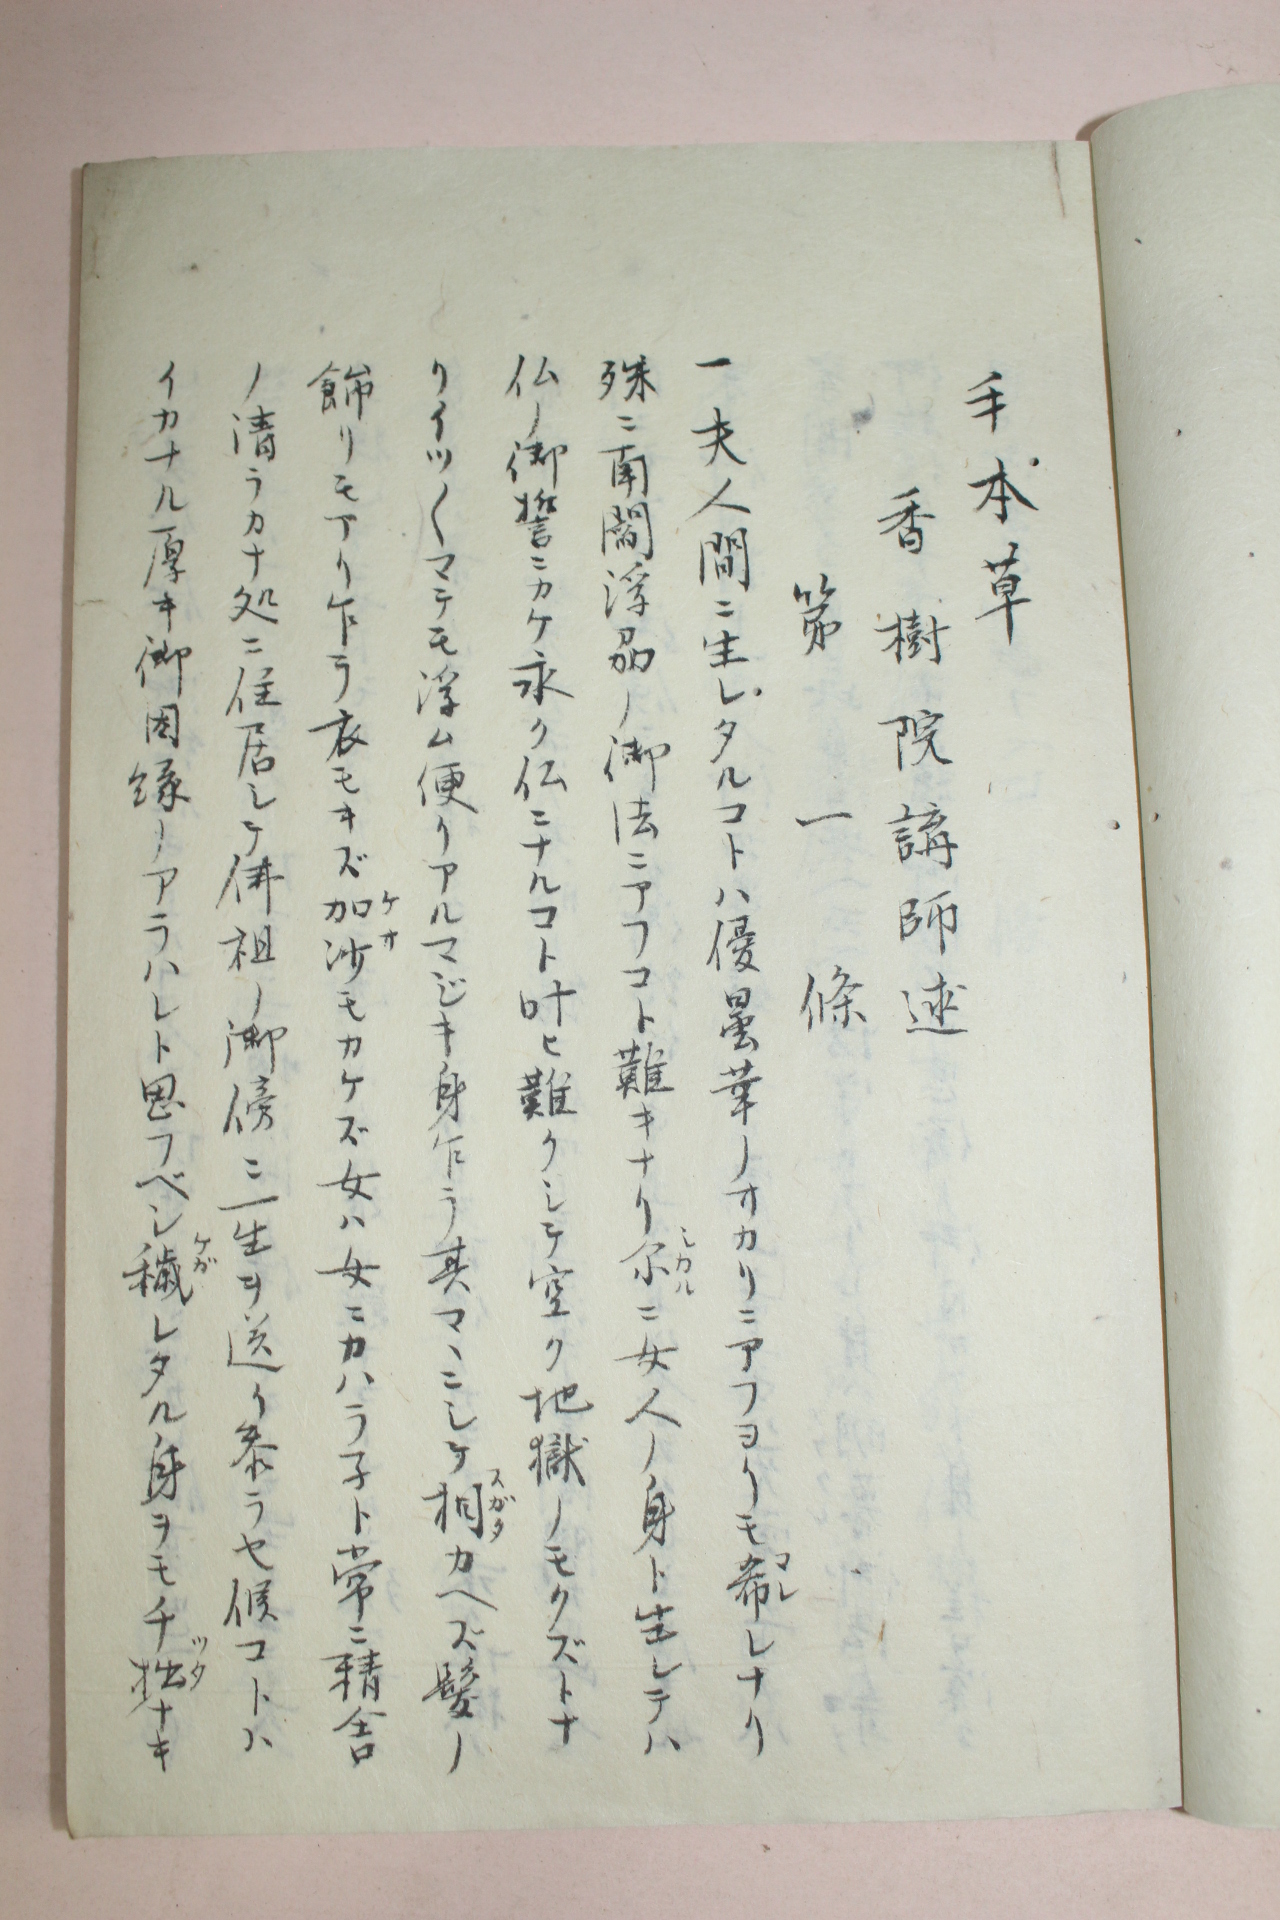 手本草
香樹院講師述
第一條
一夫人間ニ生レタルコトハ優曇華ノオカリニアフヨリモ希レナリ
殊ニ南閻浮刕ノ御法ニアフコト難キナリ尒ニ女人ノ身ト生レテハ
仏ノ御誓ニカケ永ク仏ニナルコト叶ヒ難クシテ空ク地獄ノモクズトナ
リイツ〱マテモ浮ム便リアルマジキ身乍ラ其マヽニシテ相カヘズ髪ノ
餝リモアリ乍ラ衣モキズ加沙モカケズ女ハ女ニカハラ子ト常ニ精舎
ノ清ラカナ処ニ住居シテ佛祖ノ御傍ニ一生ヲ送リ奉ラセ候コトハ
イカナル厚キ御因縁ノアラハレト思フベシ穢レタル身ヲモチ拙ナキ
マレ
シカル
スガタ
ケオ
ケガ
ツタ